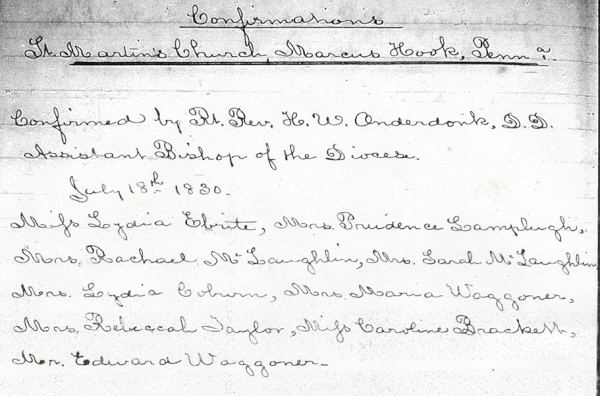 Confirmations
St. Martin's Church, Marcus Hook, Penn a.
Confirmed by Rt. Rev. H. W. Onderdonk, D.D.
Assistant Bishop of the Diocese.
July 18th 1830.
Miss Lydia Ebrite, Mrs. Prudence Lamplugh,
Mrs. Rachael McLaughlin, Mrs. Sarah McLaughlin
Mrs. Lydia Coburn, Mrs. Maria Waggoner,
Mrs. Rebeccah Taylor, Miss Caroline Brackett,
Mr. Edward Waggoner.